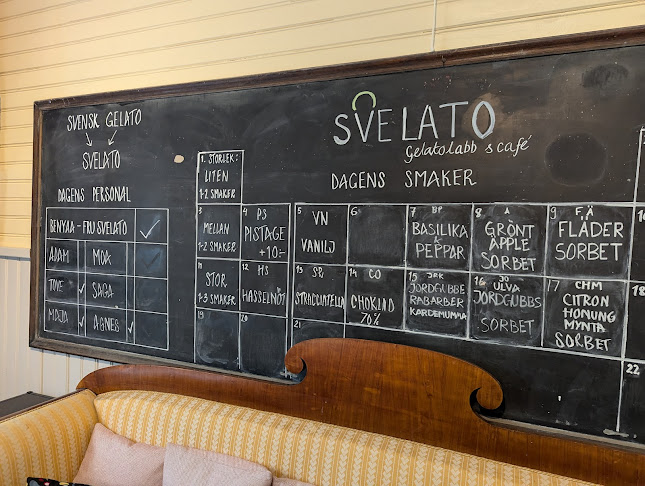 SVENSK GELATO
SVELATO
DAGENS PERSONAL
BENYAA - FRU SVELATO
ADAM MOA
TOVE SAGA
MAJA AGNES
SVELATO
Gelatolabb & café
DAGENS SMAKER
1. STORLEK:
LITEN
1-2 SMAKER
3
MELLAN
1-2 SMAKER
4 PS
PISTAGE
+10:-
5 VN
VANILJ
6
7 BP
BASILIKA
&
PEPPAR
8 Ä
GRÖNT
ÄPPLE
SORBET
9 F,Ä
FLÄDER
SORBET
10
11
STOR
1-3 SMAKER
12 HS
HASSELNÖT
13 SR
STRACCIATELLA
14 CO
CHOKLAD
70%
15 JRK
JORDGUBBE
RABARBER
KARDEMUMMA
16 JO
ULVA
JORDGUBBS
SORBET
17 CHM
CITRON
HONUNG
MYNTA
SORBET
18
19
20
21
22